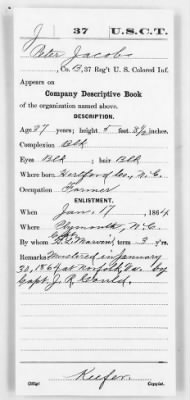 J 37 U.S.C.T.
Peter Jacobs
, Co. B, 37 Reg't U. S. Colored Inf.
Appears on
Company Descriptive Book
of the organization named above.
DESCRIPTION.
Age 27 years; height 5 feet 3½ inches.
Complexion Blk
Eyes Blk ; hair Blk
Where born Hertford Co., N.C.
Occupation Farmer
ENLISTMENT.
When Jan. 17, 1864
Where Plymouth, N.C.
By whom Marvin, term 3 y'rs.
Remarks Mustered in January
30, 1864 at Norfolk, Va. by
Capt. J. R. Gould.
Keefer
Copyist.